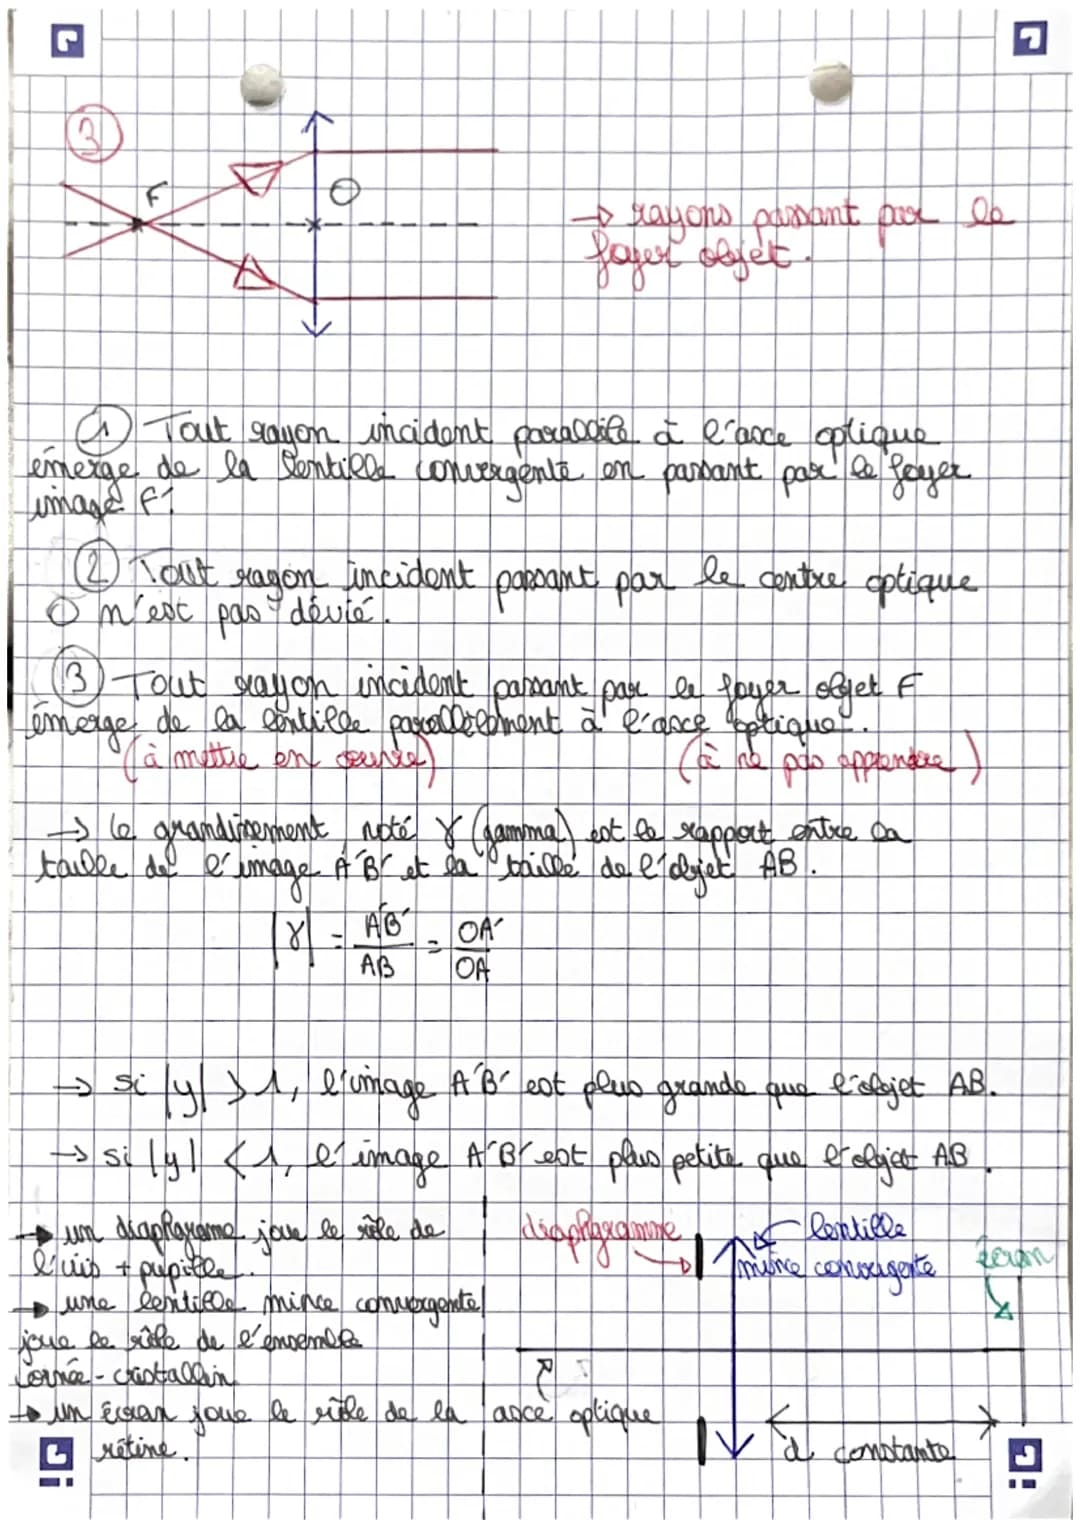 3
F
O
→ rayons passant par le
foyer objet.
① Tout rayon incident parallèle à l'axe optique
émerge de la lentille convergente en passant par le foyer
image F'.
② Tout rayon incident passant par le centre optique
O n'est pas dévié.
③ Tout rayon incident passant par le foyer objet F
émerge de la lentille parallèlement à l'axe optique.
(à mettre en œuvre) (à ne pas apprendre)
→ le grandissement noté γ (gamma) est le rapport entre la
taille de l'image A'B' et la taille de l'objet AB.
|γ| = A'B'/AB = OA'/OA
→ si |y| > 1, l'image A'B' est plus grande que l'objet AB.
→ si |y| < 1, l'image A'B' est plus petite que l'objet AB.
→ un diaphragme joue le rôle de
l'iris + pupille.
→ une lentille mince convergente
joue le rôle de l'ensemble
cornée-cristallin
→ un écran joue le rôle de la
rétine.
diaphgramme
lentille
mince convergente
écran
axe optique
d constante